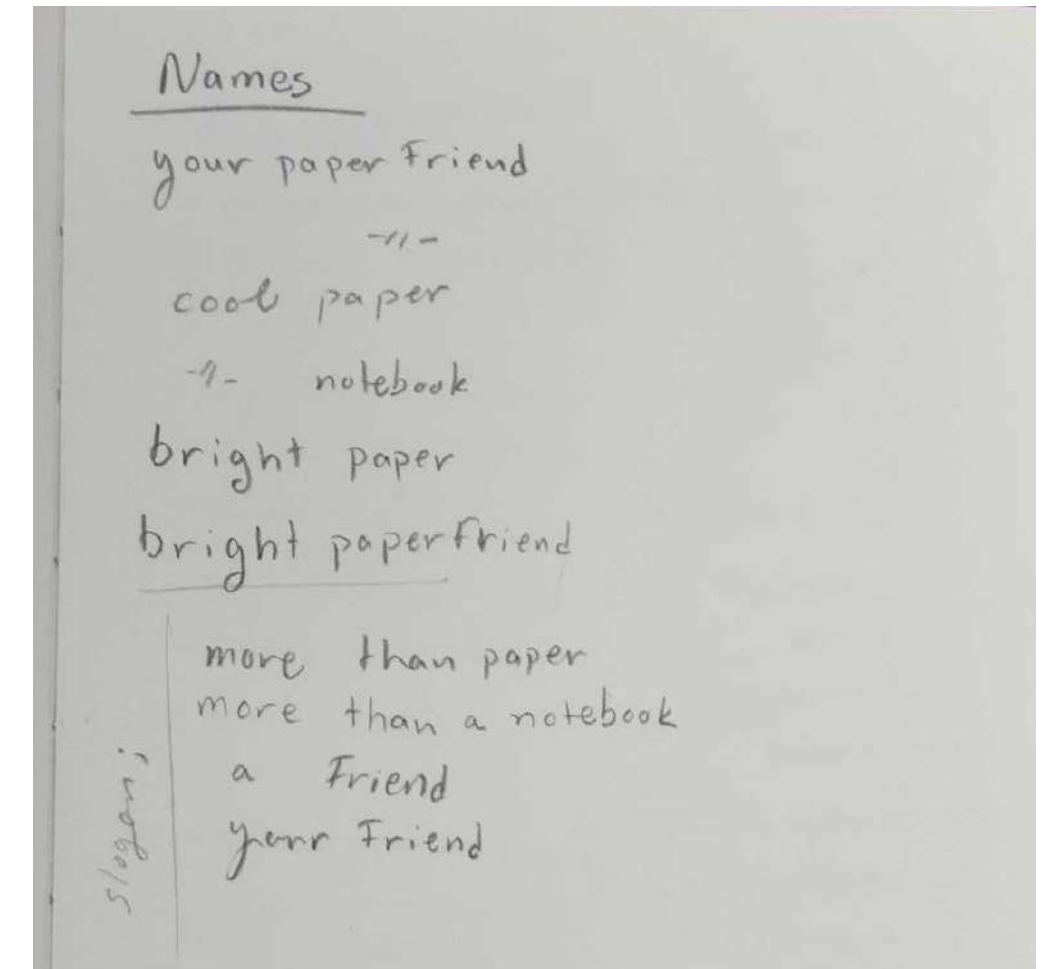 Names
your paper Friend
-11-
cool paper
-11- notebook
bright paper
bright paperfriend
more than paper
more than a notebook
a Friend
your Friend
slogan;